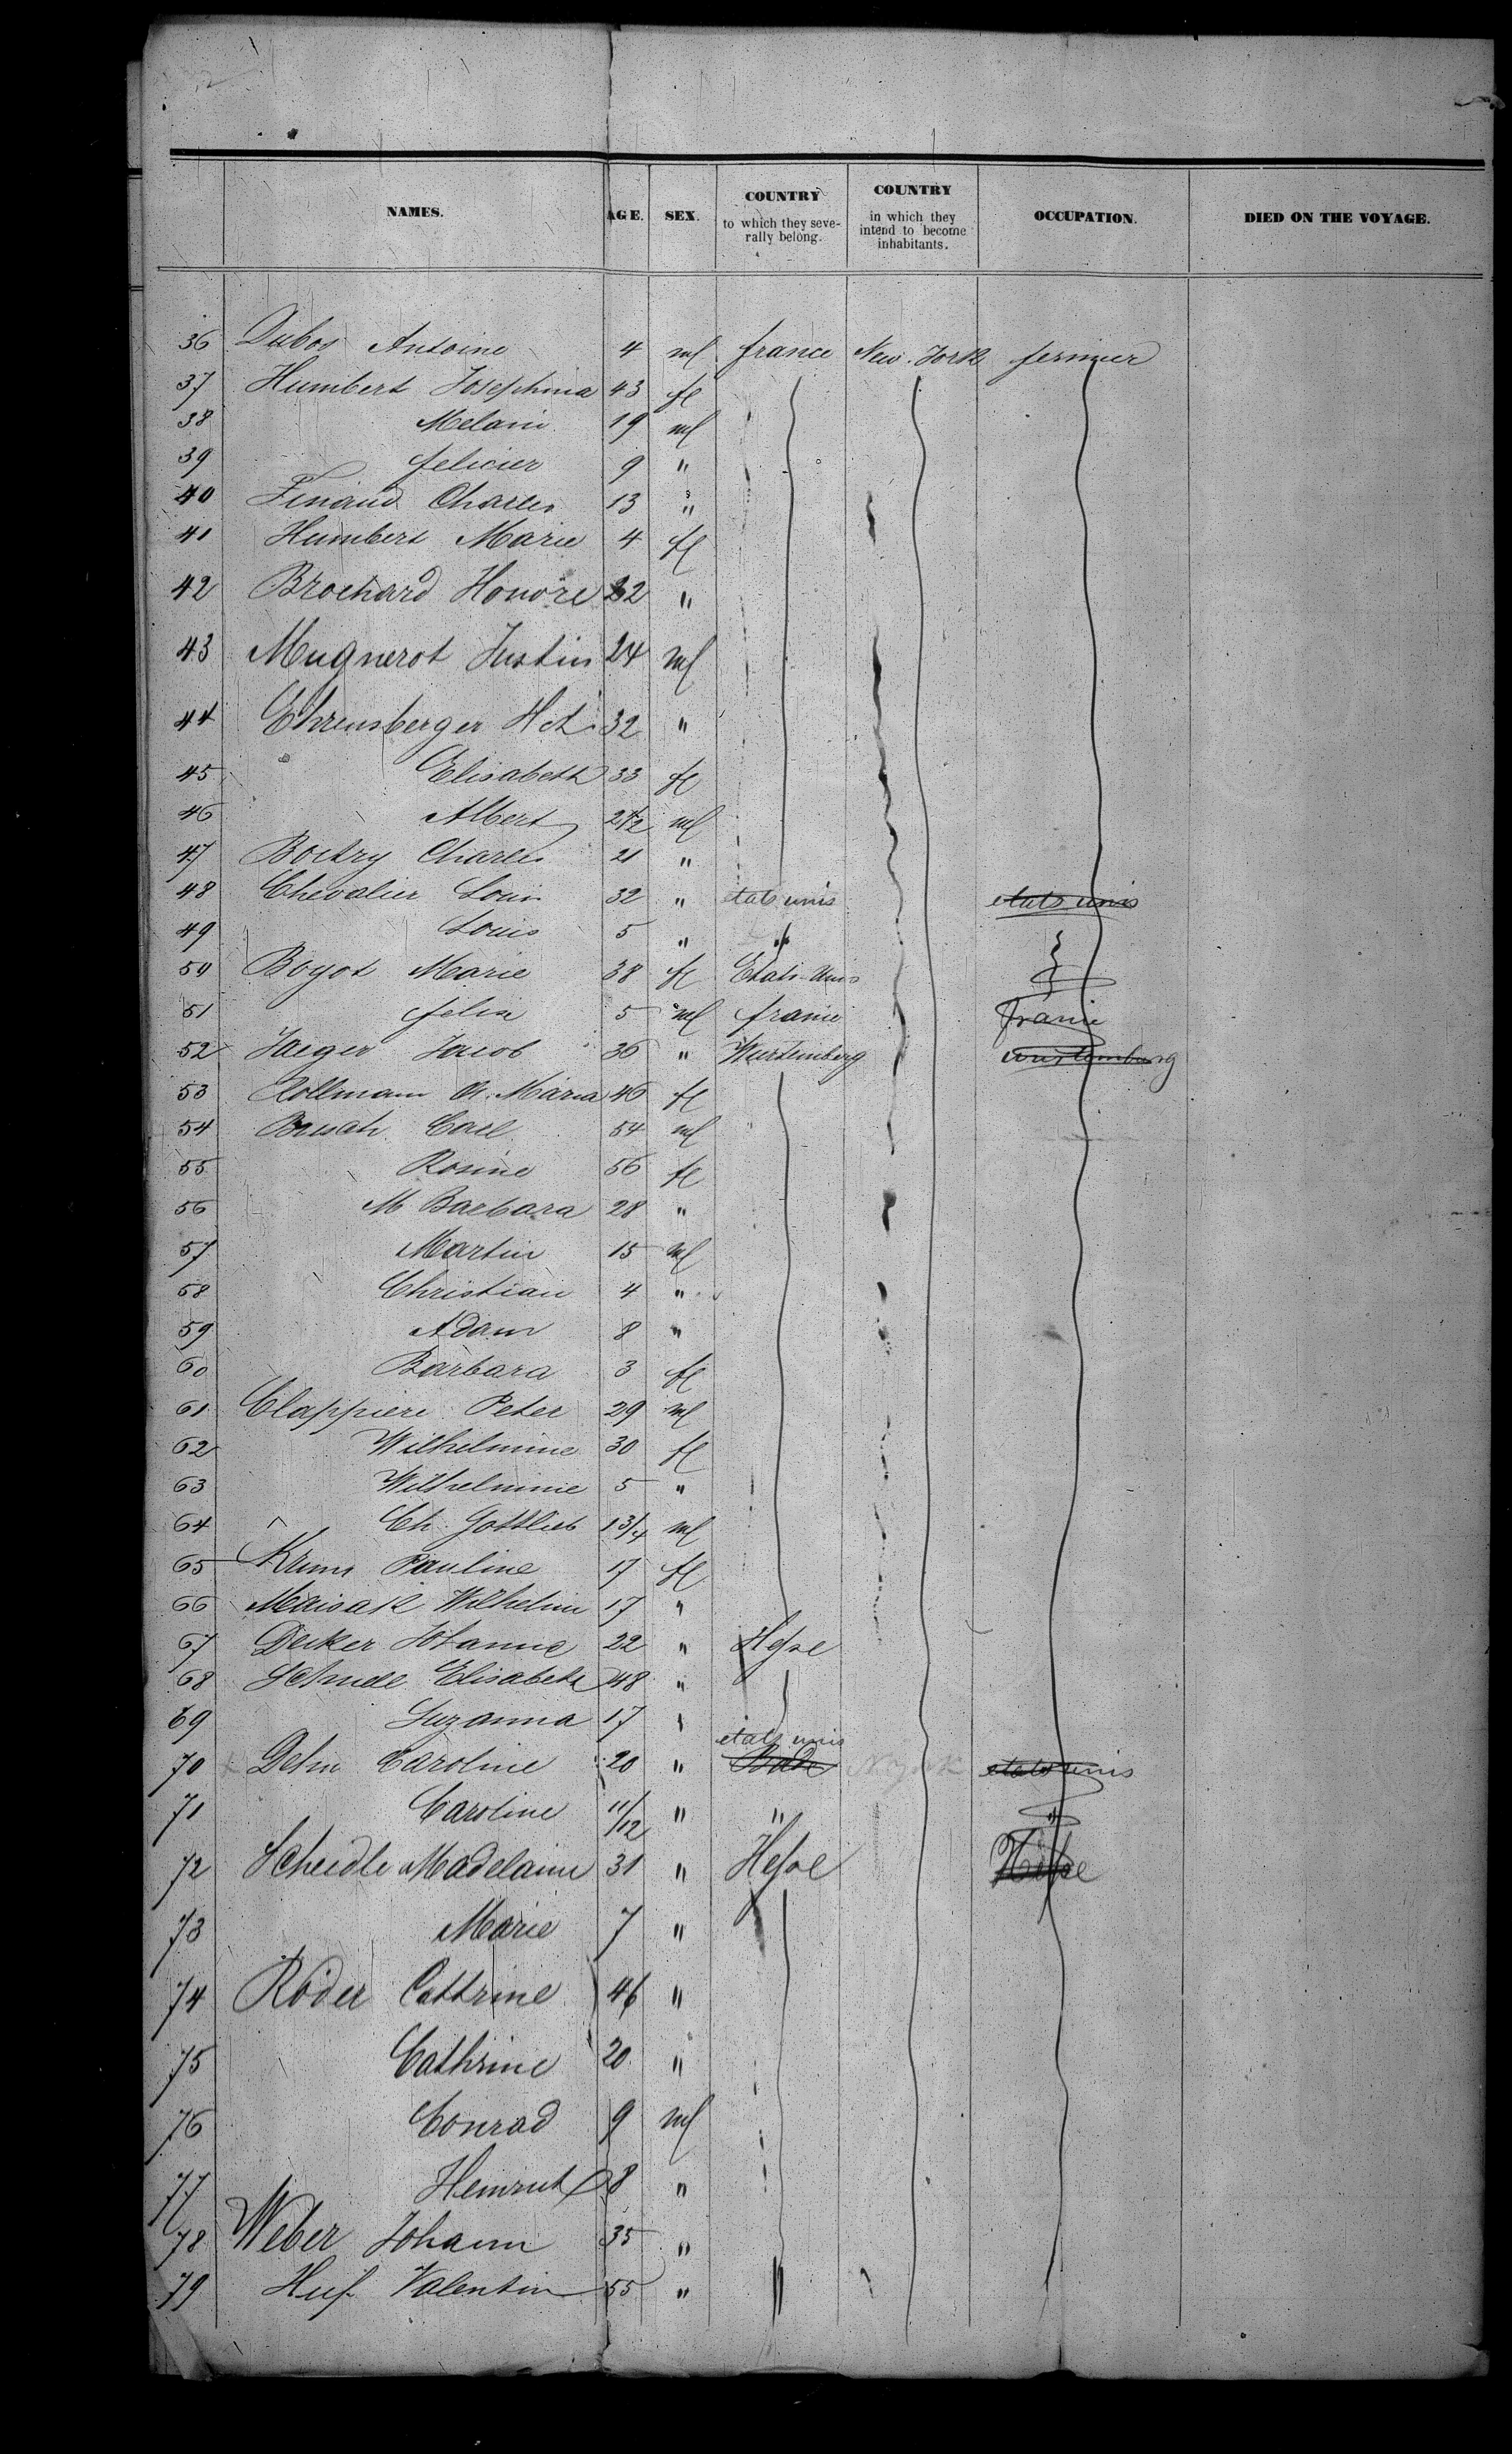 NAMES. AGE. SEX. COUNTRY to which they seve- rally belong. COUNTRY in which they intend to become inhabitants. OCCUPATION. DIED ON THE VOYAGE.
36 Dubos Antoine 4 ml france New-York fermier
37 Humbert Josephina 43 fl
38 Melani 19 ml
39 felicier 9 "
40 Finaud Charles 13 "
41 Humbert Marie 4 fl
42 Brochard Honore 22 "
43 Mugnerot Justin 24 ml
44 Ehrensberger Hch 32 "
45 Elisabeth 33 fl
46 Albert 2 1/2 ml
47 Boetry Charles 21 "
48 Chevalier Louis 32 " etats unis etats unis
49 Louis 5 " "
50 Boyot Marie 38 fl Etats-Unis
51 felix 5 ml france france
52 Jaeger Jacob 36 " Wurtemberg wurtemburg
53 Kollmann A. Maria 46 fl
54 Busah Carl 54 ml
55 Rosine 56 fl
56 M Barbara 28 "
57 Martin 15 ml
58 Christian 4 "
59 Adam 8 "
60 Barbara 3 fl
61 Clappiere Peter 29 ml
62 Wilhelmine 30 fl
63 Wilhelmine 5 "
64 Ch. Gottlieb 1 3/4 ml
65 Krums Pauline 17 fl
66 Maisak Wilhelmin 17 "
67 Decker Johanne 22 " Hesse
68 Elisabeth 48 "
69 Suzanna 17 "
etats unis
70 Dehn Caroline 20 " Bade N york etats unis
71 Caroline 11/12 " " "
72 Scheidle Madelaine 31 " Hesse Hesse
73 Marie 7 "
74 Röder Cathrine 46 "
75 Cathrine 20 "
76 Conrad 9 ml
77 Heinrich 8 "
78 Weber Johann 35 "
79 Huf Valentin 55 "